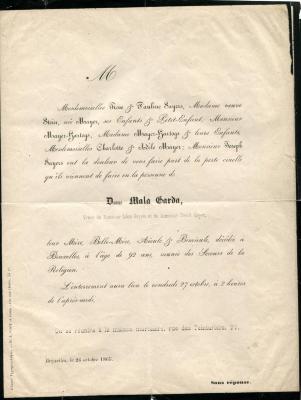 M
Mesdemoiselles Rose & Pauline Sayers, Madame veuve
Stein, née Mayer, ses Enfants & Petit-Enfant, Monsieur
Mayer-Hartogs, Madame Mayer-Hartogs & leurs Enfants,
Mesdemoiselles Charlotte & Adèle Mayer; Monsieur Joseph
Sayers ont la douleur de vous faire part de la perte cruelle
qu'ils viennent de faire en la personne de
Dame Mala Garda,
Veuve de Monsieur et de Monsieur
leur Mère, Belle-Mère, Aïeule & Bisaïeule, décédée à
Bruxelles, à l'âge de 92 ans, munie des Secours de la
Religion.
L'enterrement aura lieu le vendredi 27 octobre, à 2 heures
de l'après-midi.
On se réunira à la maison mortuaire, rue des Teinturiers,
Bruxelles, le 26 octobre 1865.
Sans réponse.